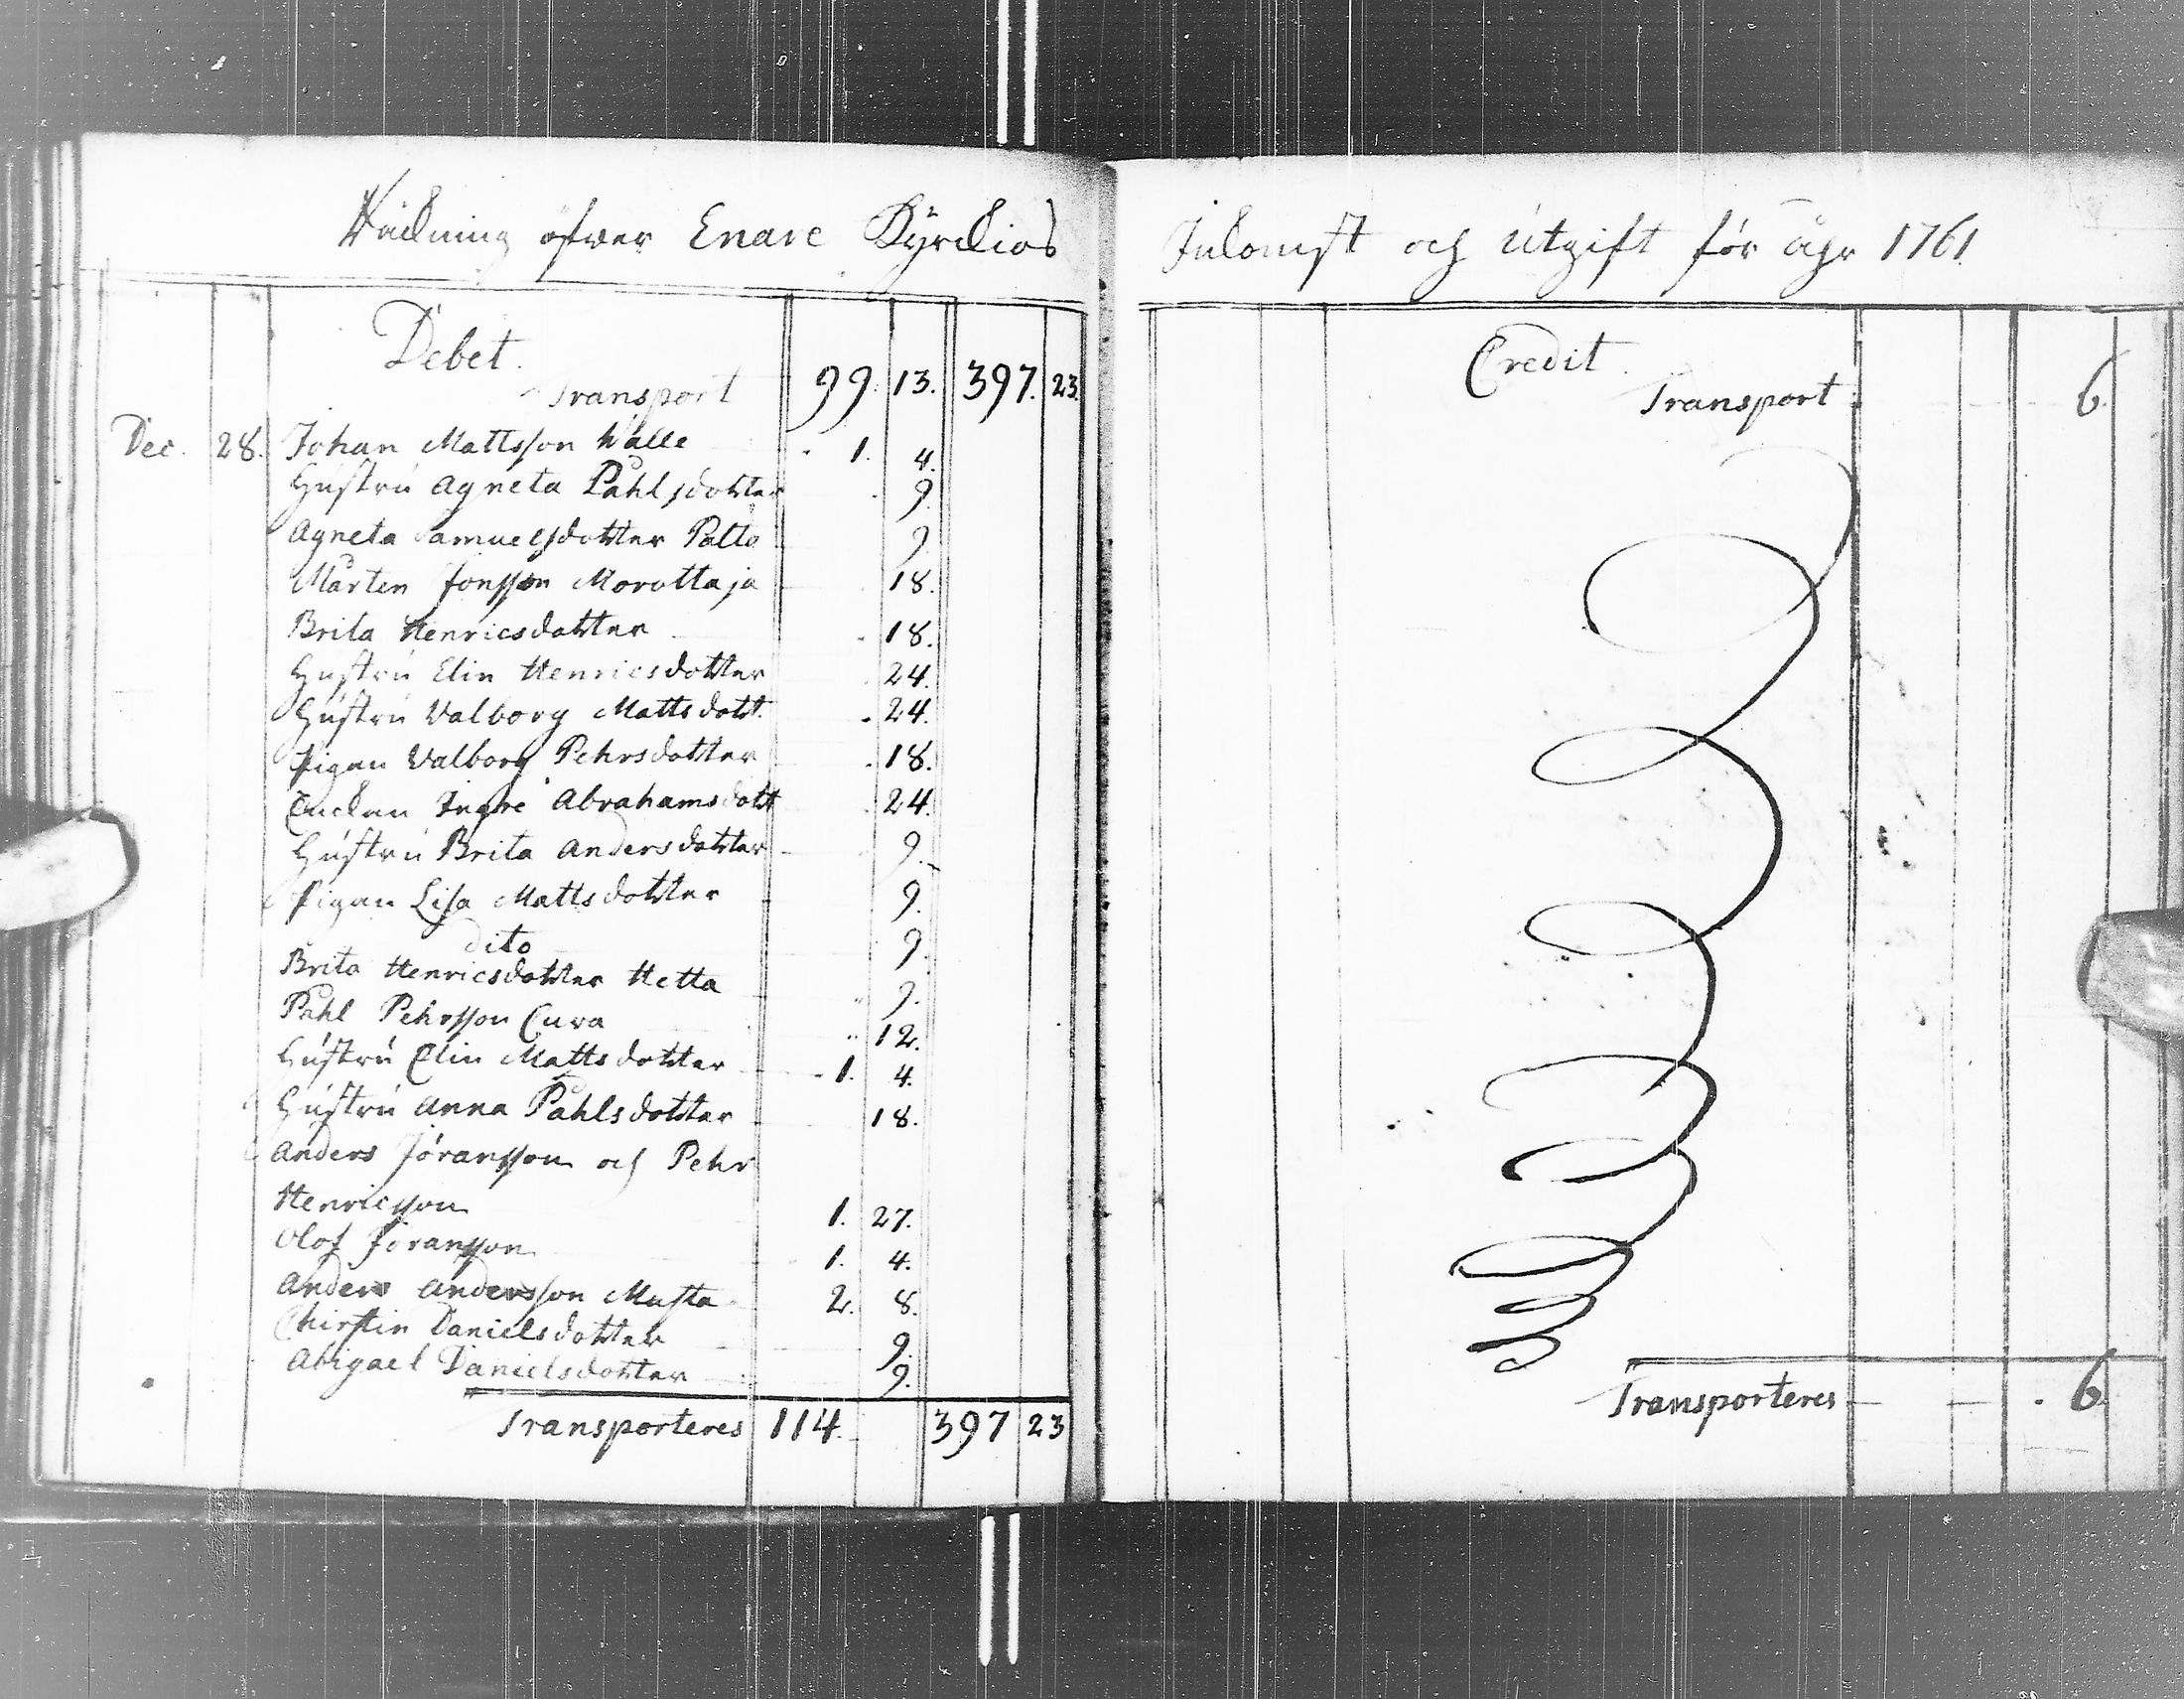 Räckning öfwer Enare Kÿrckios
Debet.
Transport 99. 13. 397. 23.
Dec. 28. Johan Mattsson Walle 1. 4.
Hustru Agneta Påhlsdotter 9.
Agneta Samuelsdotter Palto 9.
Mårten Jonsson Morottaja 18.
Brita Henricsdotter 18.
Hustru Elin Henricsdotter 24.
Hustru Valborg Mattsdott. 24.
Pigan Valborg Pehrsdotter 18.
Enckan Ingre Abrahamsdott 24.
Hustru Brita Andersdotter 9.
Pigan Lisa Mattsdotter 9.
dito 9.
Brita Henricsdotter Hetta 9.
Påhl Pehrsson Cuva 12.
Hustru Elin Mattsdotter 1. 4.
Hustru Anna Påhlsdotter 18.
Anders Jöransson och Pehr
Henricsson 1. 27.
Olof Jöransson 1. 4.
Anders Andersson Musta 2. 8.
Chirstin Danielsdotter 9.
Abigael Danielsdotter 9.
Transporteres 114. 397 23
Inkomst och Utgift för åhr 1761
Credit.
Transport 6.
Transporteres 6.